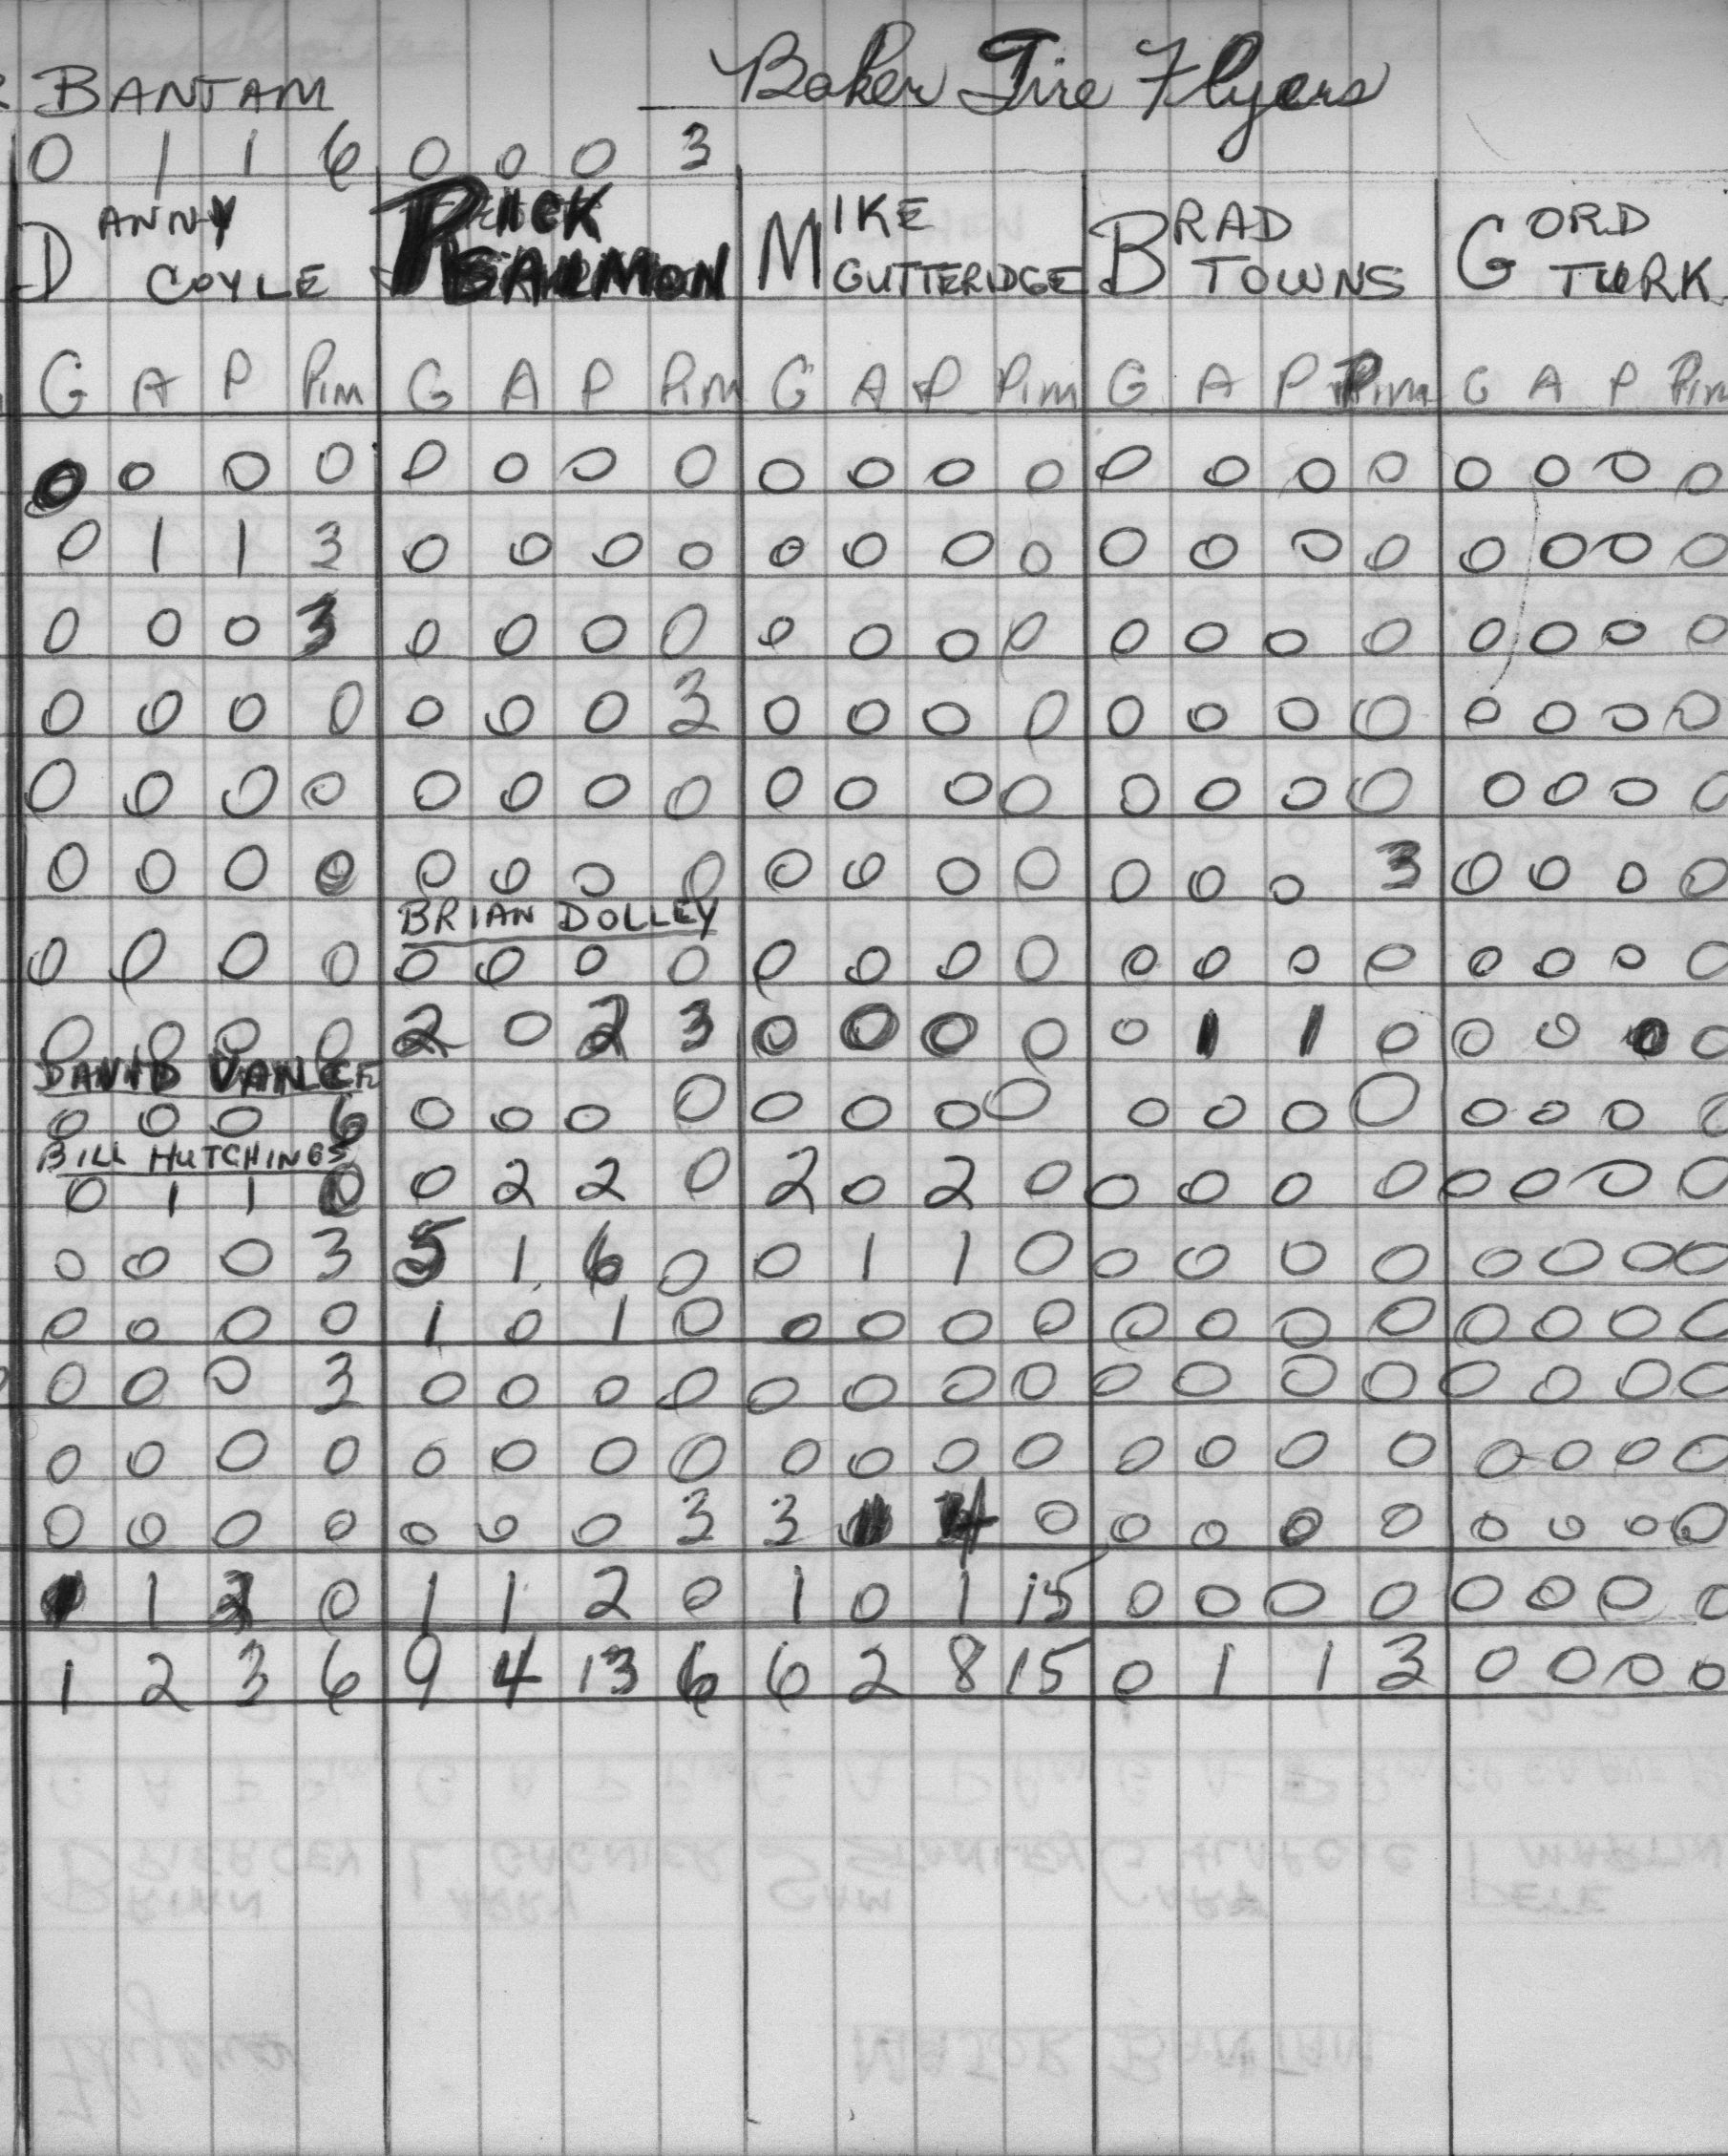 BANTAM Baker Tire Flyers
0 1 1 6 0 0 0 3
DANNY RICK MIKE BRAD GORD
COYLE SALMON GUTTERIDGE TOWNS TURK
G A P Pim G A P Pim G A P Pim G A P Pim G A P Pim
0 0 0 0 0 0 0 0 0 0 0 0 0 0 0 0 0 0 0 0
0 1 1 3 0 0 0 0 0 0 0 0 0 0 0 0 0 0 0 0
0 0 0 3 0 0 0 0 0 0 0 0 0 0 0 0 0 0 0 0
0 0 0 0 0 0 0 3 0 0 0 0 0 0 0 0 0 0 0 0
0 0 0 0 0 0 0 0 0 0 0 0 0 0 0 0 0 0 0 0
0 0 0 0 0 0 0 0 0 0 0 0 0 0 0 3 0 0 0 0
BRIAN DOLLEY
0 0 0 0 0 0 0 0 0 0 0 0 0 0 0 0 0 0 0 0
0 0 0 0 2 0 2 3 0 0 0 0 0 1 1 0 0 0 0 0
DAVID VANCE
0 0 0 6 0 0 0 0 0 0 0 0 0 0 0 0 0 0 0 0
BILL HUTCHINGS
0 1 1 0 0 2 2 0 2 0 2 0 0 0 0 0 0 0 0 0
0 0 0 3 5 1 6 0 0 1 1 0 0 0 0 0 0 0 0 0
0 0 0 0 1 0 1 0 0 0 0 0 0 0 0 0 0 0 0 0
0 0 0 3 0 0 0 0 0 0 0 0 0 0 0 0 0 0 0 0
0 0 0 0 0 0 0 0 0 0 0 0 0 0 0 0 0 0 0 0
0 0 0 0 0 0 0 3 3 1 4 0 0 0 0 0 0 0 0 0
1 1 2 0 1 1 2 0 1 0 1 15 0 0 0 0 0 0 0 0
1 2 3 6 9 4 13 6 6 2 8 15 0 1 1 3 0 0 0 0